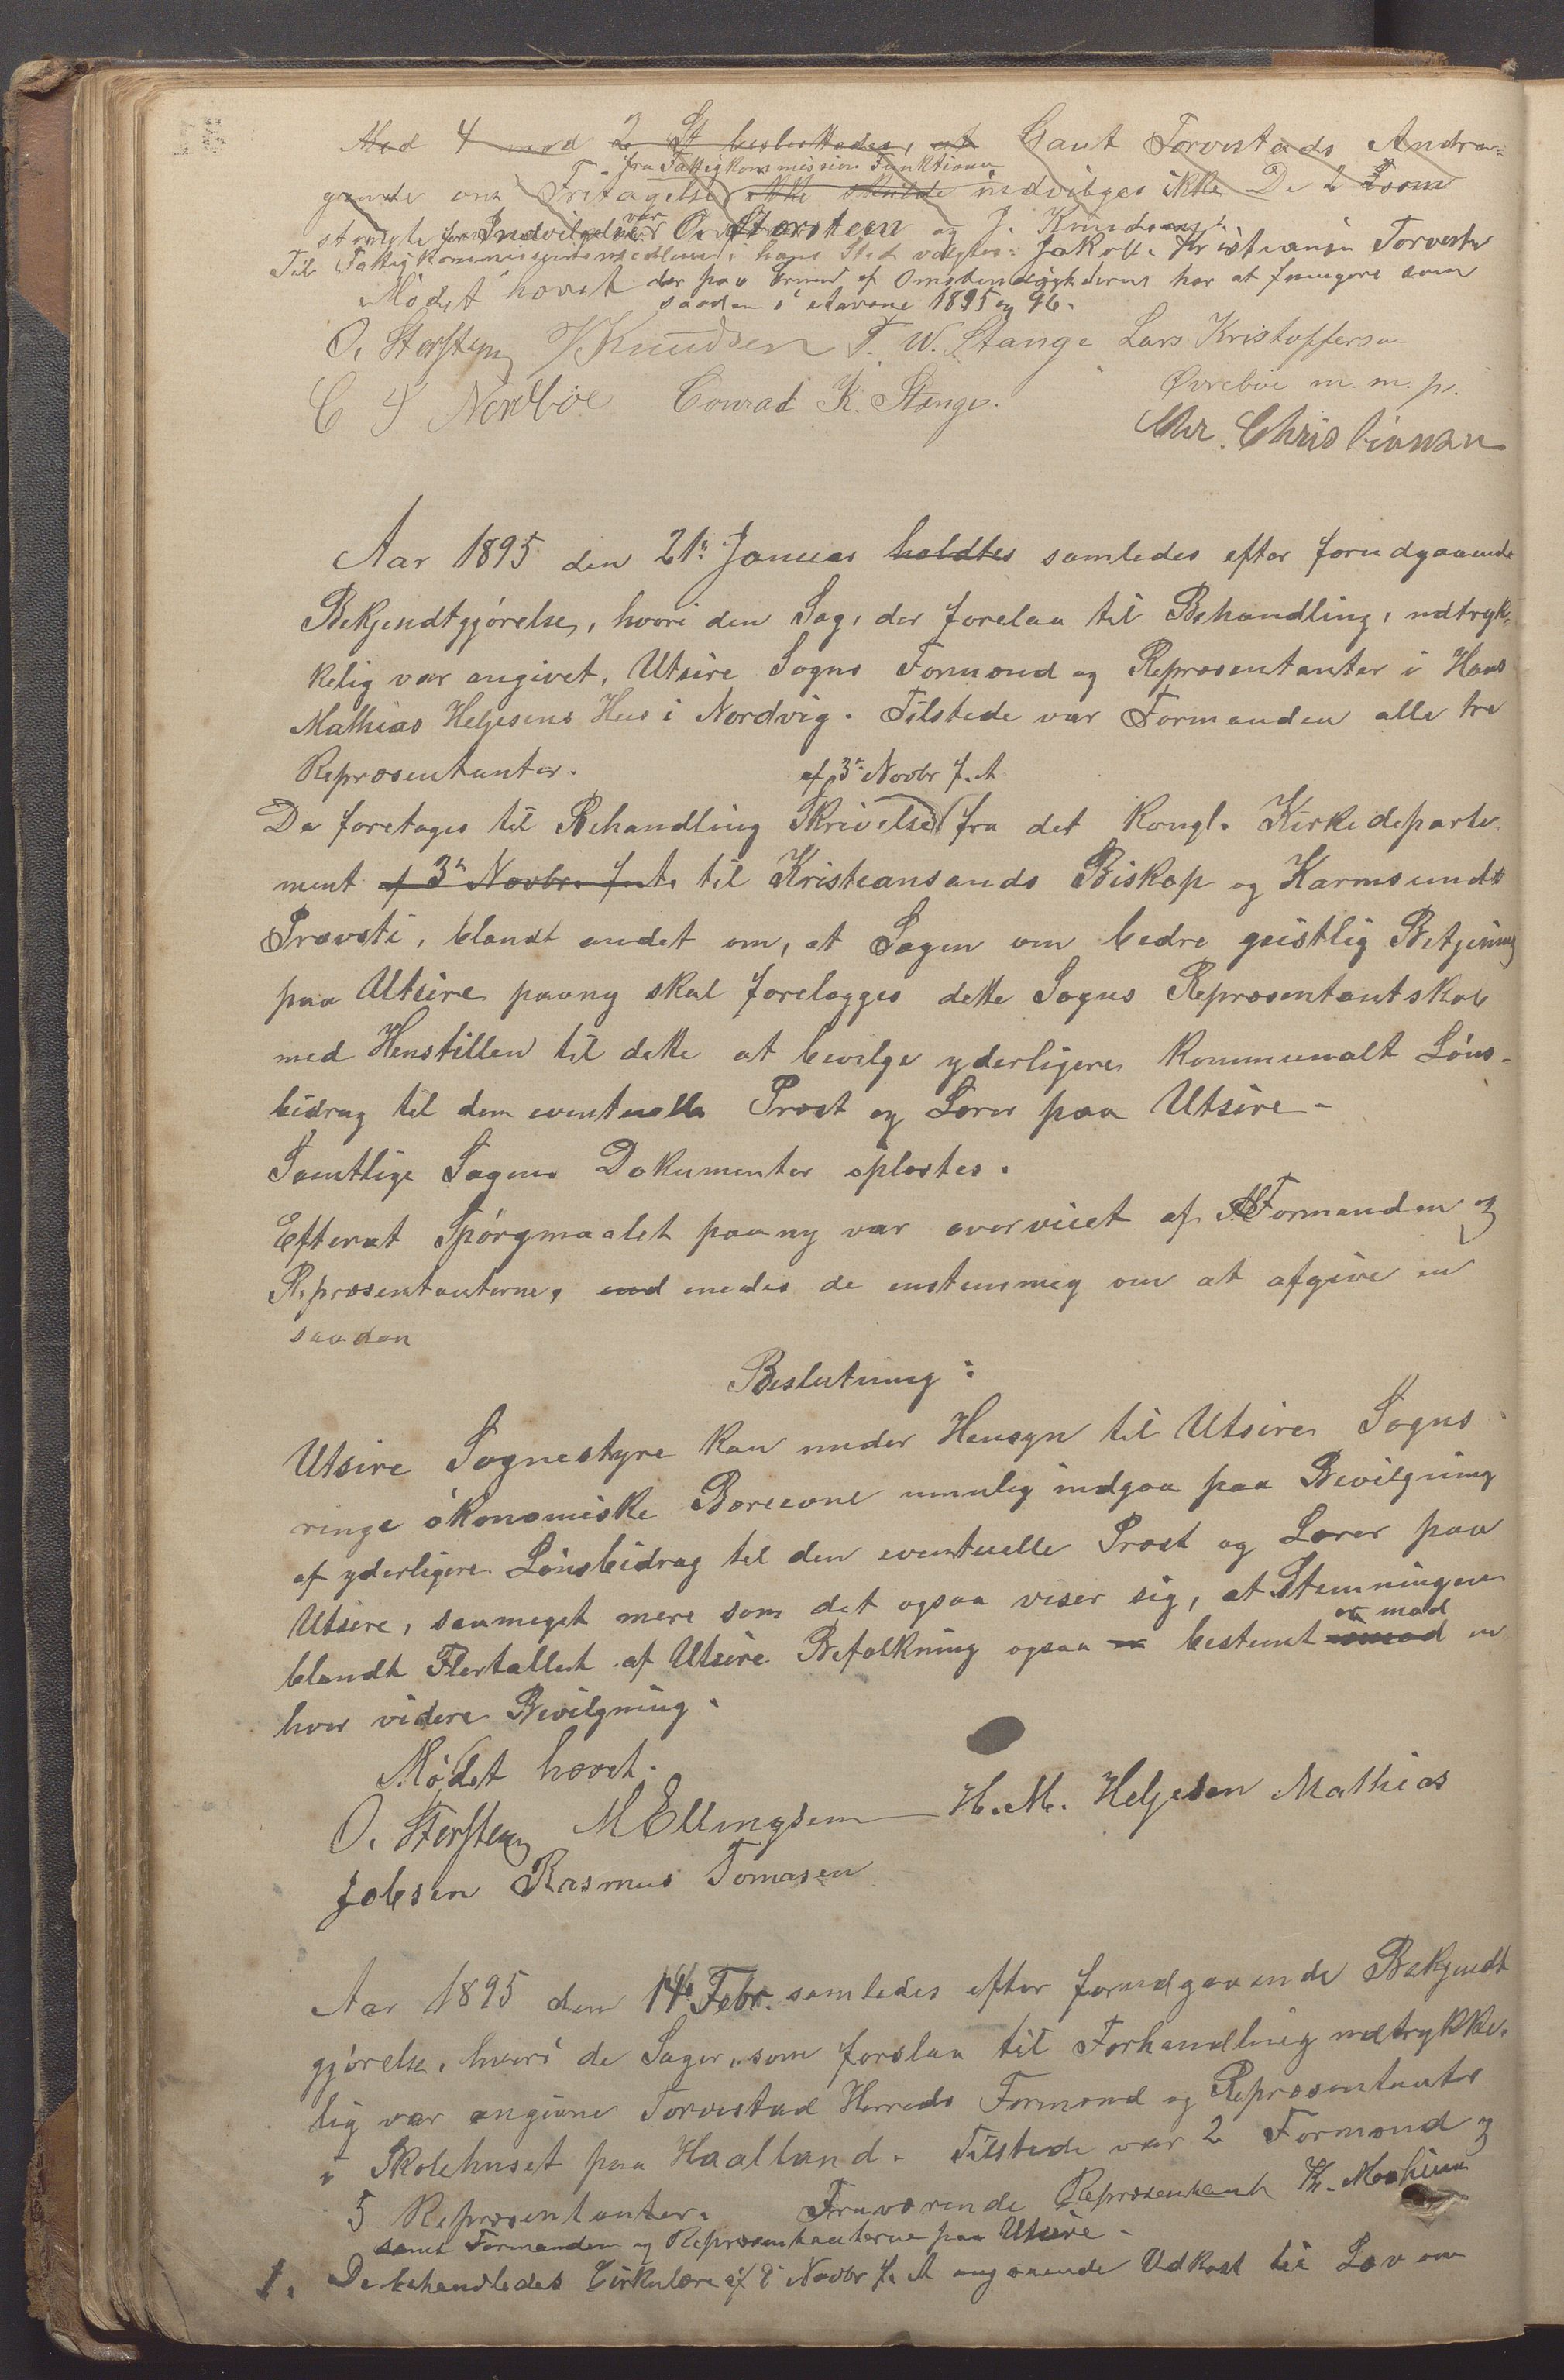 Med 4 mod 2 St besluttedes, at Gaut Torvestads Andra-
fra Fattigkommission Funktionen
gende om Fritagelse ikke skulde indvilges ikke De 2 som
stemte for Indvilgelse var O. Storsteen og J. Knudsen.
Til Fattigkommissionsmedlem i hans Sted valgtes: Jakob Kristiansen Torvestad
Mødet hævet der paa Grund af Omstændighederne har at fungere som
saadan i Aarene 1895 og 96.
O. Storsteen J Knudsen T. W. Stange Lars Kristoffersen
C S Nordbøe Conrad K. Stange. Øvrebøe m. m. p.
Chr. Christiansen
Aar 1895 den 21de Januar holdtes samledes efter forudgaaende
Bekjendtgjørelse, hvori den Sag, der forelaa til Behandling, udtryk-
kelig var angivet, Utsire Sogns Formænd og Repræsentanter i Hans
Mathias Helgesens Hus i Nordvig. Tilstede var Formanden alle tre
Repræsentanter.
af 3de Novbr f. A
Da foretages til Behandling Skrivelse fra det Kongl. Kirkedeparte-
ment af 3de Novbr. f. A. til Kristiansands Biskop og Karmsunds
Provsti, blandt andet om, at Sagen om bedre geistlig Betjening
paa Utsire paany skal forelægges dette Sogns Repræsentantskab
med Henstillen til dette at bevilge yderligere kommunalt Løns-
bidrag til den eventuelle Præst og Lærer paa Utsire -
Samtlige Sagens Dokumenter oplæstes.
Efterat Spørgmaalet paany var overveiet af Formanden og
Repræsentanterne, end enedes de enstemmig om at afgive en
saadan
Beslutning:
Utsire Sognestyre kan under Hensyn til Utsire Sogns
ringe økonomiske Bæreevne umulig indgaa paa Bevilgning
af yderligere Lønsbidrag til den eventuelle Præst og Lærer paa
Utsire, saameget mere som det ogsaa viser sig, at Stemningen
er mod
blandt Flertallet af Utsire Befolkning ogsaa er bestemt en
hver videre Bevilgning.
Mødet hævet.
O. Storsteen M Ellingsen H. M. Helgesen Mathias
Jobsen Rasmus Tomasen
Aar 1895 den 14de Febr. samledes efter forudgaaende Bekjendt
gjørelse, hvori de Sager, som forelaa til Forhandling udtrykke-
lig var angivne Torvestad Herreds Formænd og Repræsentanter
i Skolehuset paa Haalland. Tilstede var 2 Formænd og
5 Repræsentanter. Fraværende Repræsentant
samt Formanden og Repræsentanterne paa Utsire -
1. De behandledes Cirkulære af 8 Novbr f. A angaaende Udkast til Lov om